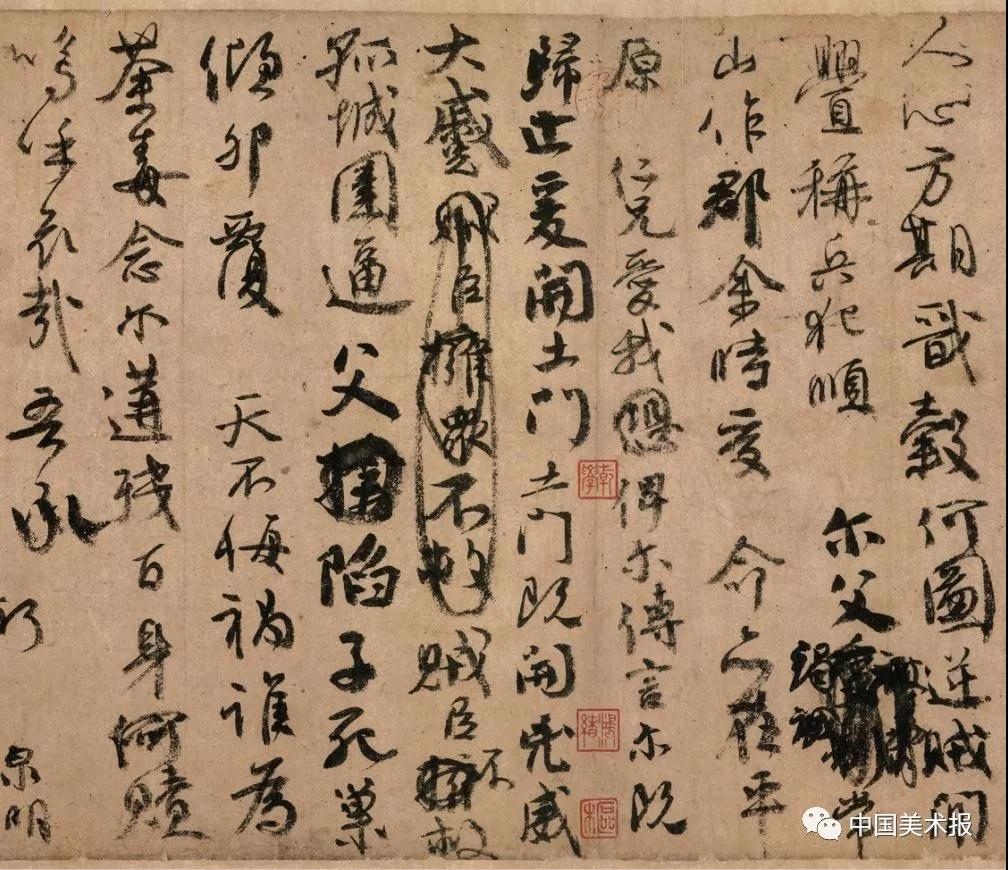 人心方期戩穀何圖逆賊閒
舋稱兵犯順 尔父竭誠常
山作郡余時受 命亦在平
原 仁兄愛我恐俾尔傳言尔既
歸止爰開土門土門既開兇威
大蹙賊臣擁衆不救賊臣不擁救
孤城圍逼 父擒陷子死巢
傾卵覆 天不悔禍誰為
荼毒念尔遘殘百身何贖
嗚呼哀哉吾承
泉明
乾學
中国美术报